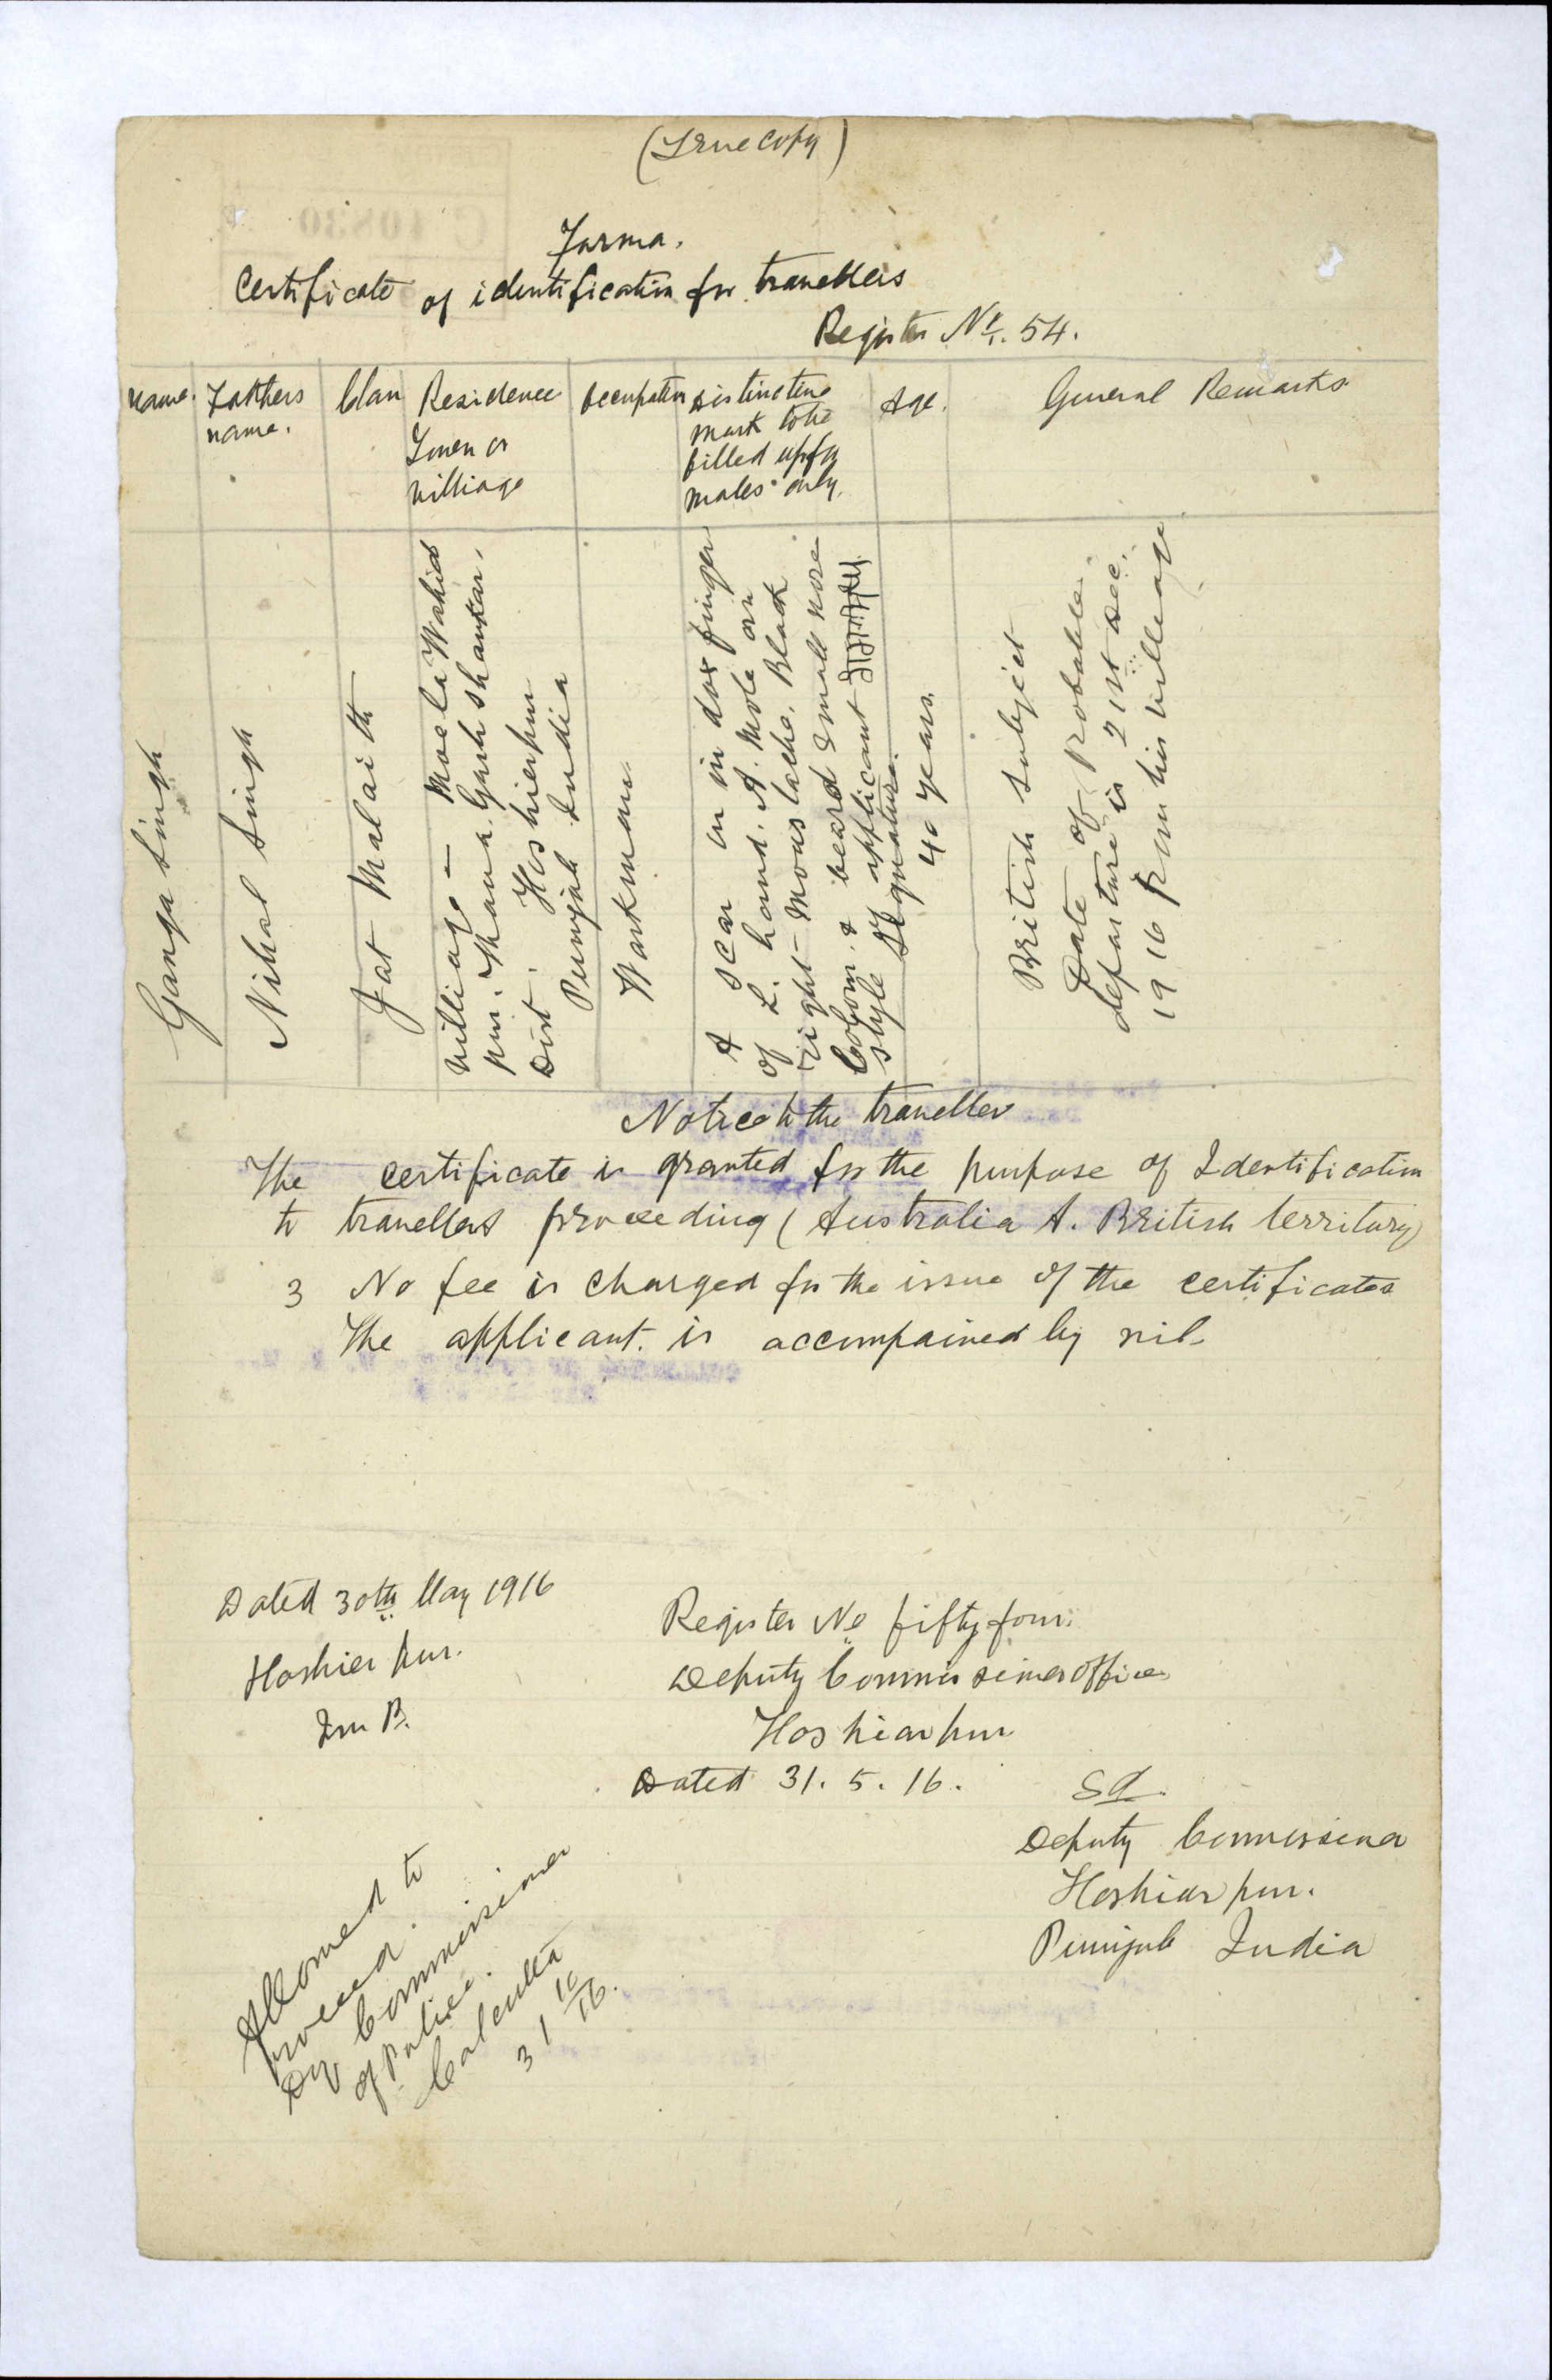 (True copy)
Forma.
Certificate of identification for travellers
Register No. 54.
Name.
Fathers
name.
Clan
Residence
Town or
villiage
Occupation
Distinctive
mark to be
filled up for
males only.
Age.
General Remarks
Ganga Singh
Nihal Singh
Jat Malaith
Villiage - Moela Wahid
pur. Thana. Garh Shankar.
Dist. Hoshierpur
Punjab India
Workman.
A scar in in dox finger
of L. hand. A. Mole on
right - Moustache. Black
Colour. & beard small nose
style of applicant
Signature.
40 years.
British Subject
Date of Probable
departure is 21st Dec.
1916 from his villeage
Notice to the traveller
The certificate is granted for the purpose of Identification
to travellers proceeding (Australia A. British territory)
3 No fee is charged for the issue of the certificates
The applicant. is accompained by nil
Dated 30th May 1916
Hoshier pur.
Register No fifty four.
Deputy Commissioner office
Hoshiarpur
Dated 31. 5. 16.
Sd.
Deputy Commissioner
Hoshiar pur.
Punjab India
Allowed to
proceed.
Dy Commissioner
of Police.
Calcutta
31 10/16.